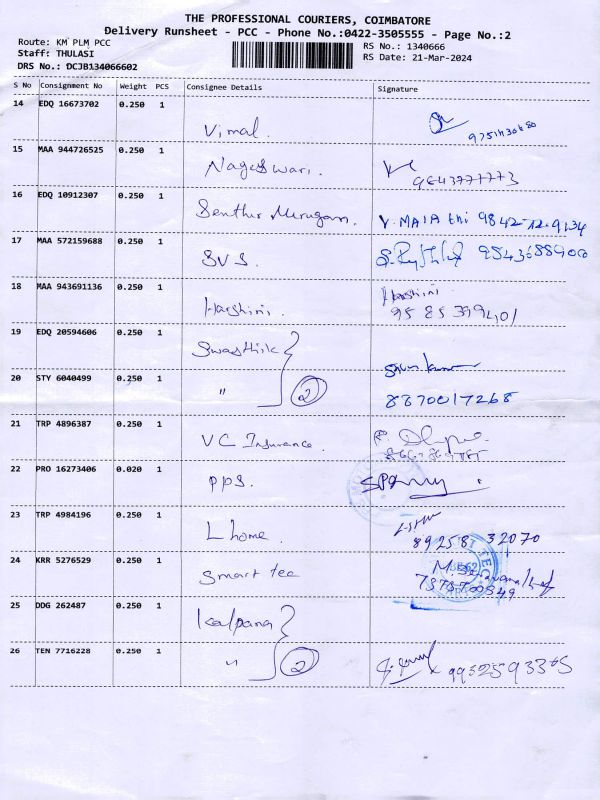 THE PROFESSIONAL COURIERS, COIMBATORE
Delivery Runsheet - PCC - Phone No.:0422-3505555 - Page No.:2
Route: KM PLM PCC
RS No.: 1340666
Staff: THULASI
RS Date: 21-Mar-2024
DRS No.: DCJB134066602
S No Consignment No Weight PCS Consignee Details Signature
14 EDQ 16673702 0.250 1
Vimal.
15 MAA 944726525 0.250 1
Nageswari.
9843777773
16 EDQ 10912307 0.250 1
Senthur Murugan. V. MAlA
17 MAA 572159688 0.250 1
SVS. 9543688900
18 MAA 943691136 0.250 1 Harshini.
Harshini. 9585399401
19 EDQ 20594606 0.250 1
Swasthik
20 STY 6040499 0.250 1
" 2 8870017268
21 TRP 4896387 0.250 1
VC Insurance.
22 PRO 16273406 0.020 1
PPS.
23 TRP 4984196 0.250 1
L home. 89258 32070
24 KRR 5276529 0.250 1
Smart tec
25 DDG 262487 0.250 1
Kalpana
26 TEN 7716228 0.250 1
" 2